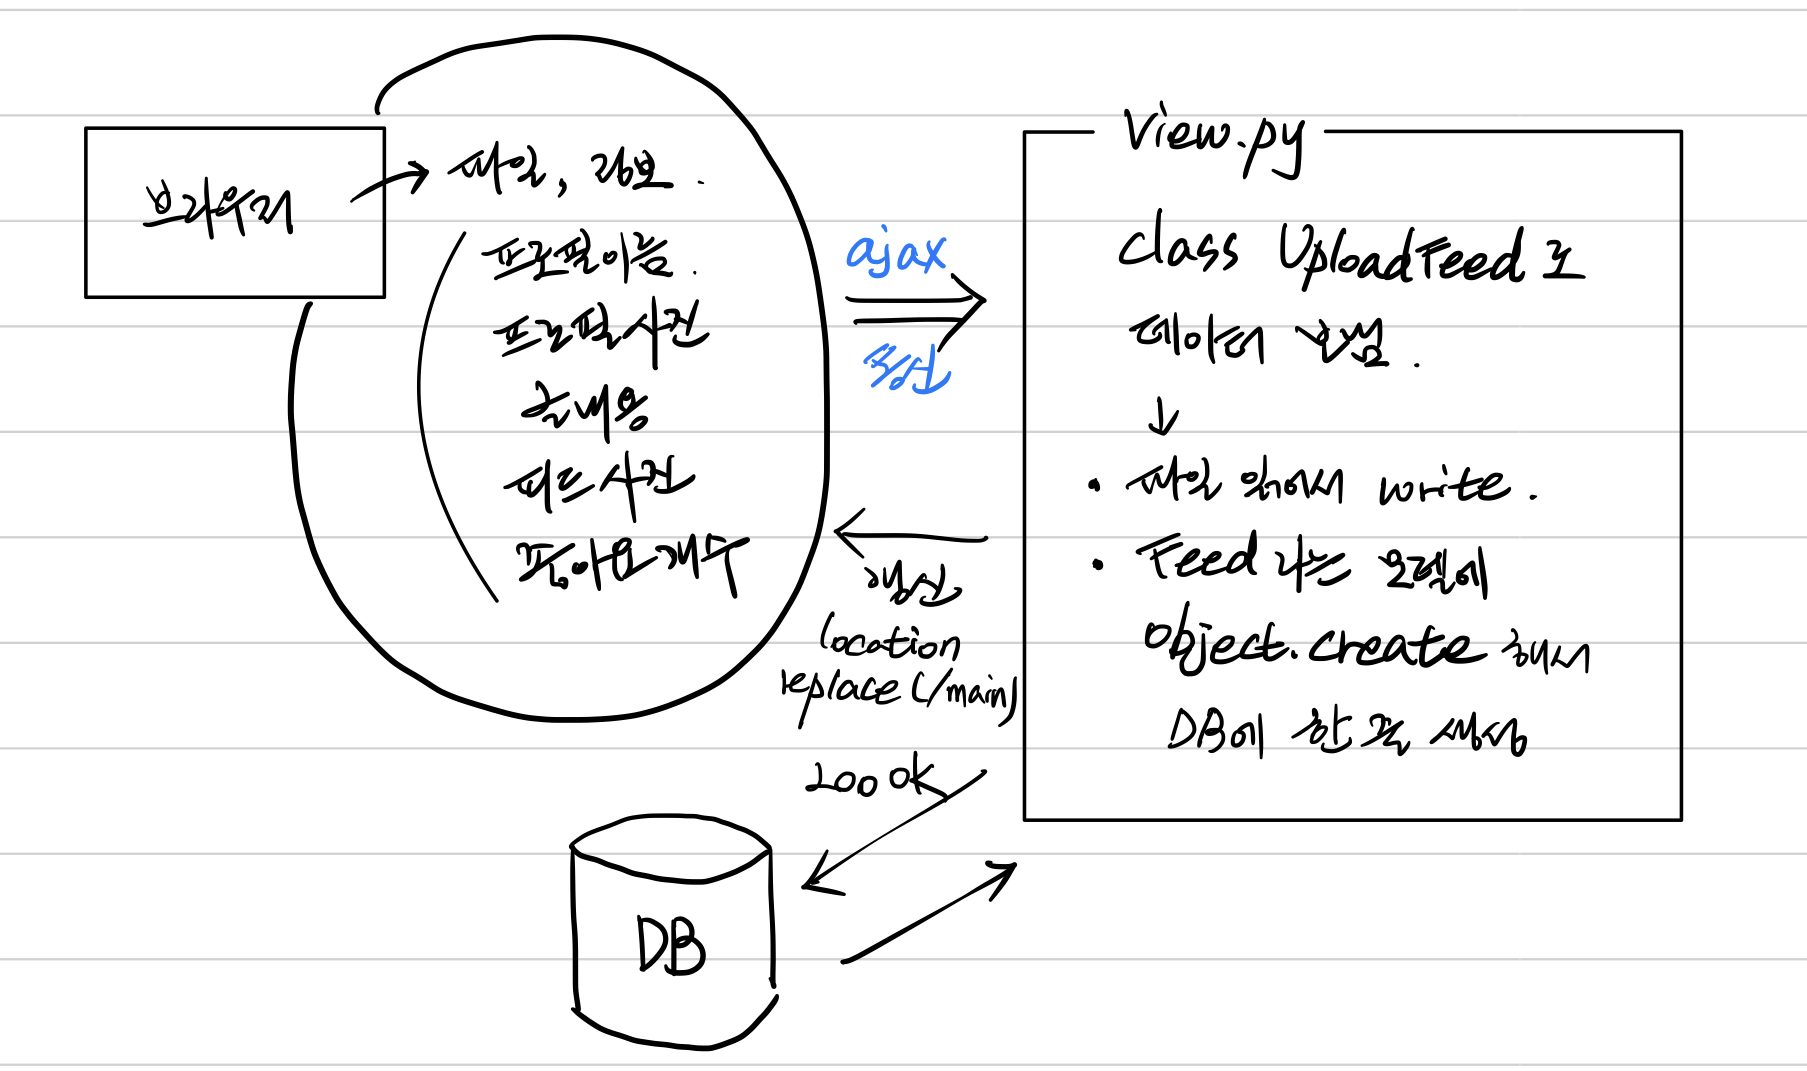 브라우저
파일, 정보.
프로필이름.
프로필사진
글내용
피드사진
좋아요개수
ajax
통신
갱신
location
replace(/main)
200 ok
DB
View.py
class UploadFeed로
데이터 보냄.
↓
• 파일 읽어서 write.
• Feed 라는 모델에
object.create 해서
DB에 한 줄 생성